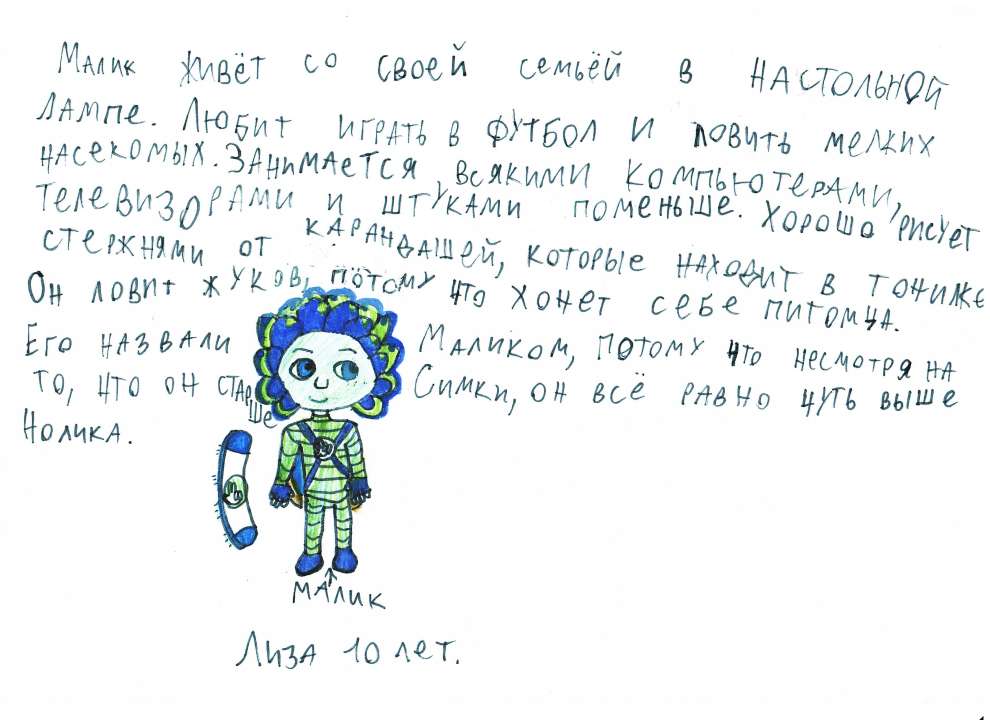 Малик живёт со своей семьёй в настольной
лампе. Любит играть в футбол и ловить мелких
насекомых. Занимается всякими компьютерами,
телевизорами и штуками поменьше. Хорошо рисует
стержнями от карандашей, которые находит в тониже
Он ловит жуков, потому что хочет себе питомца.
Его назвали Маликом, потому что несмотря на
то, что он старше Симки, он всё равно чуть выше
Нолика.
Малик
Лиза 10 лет.